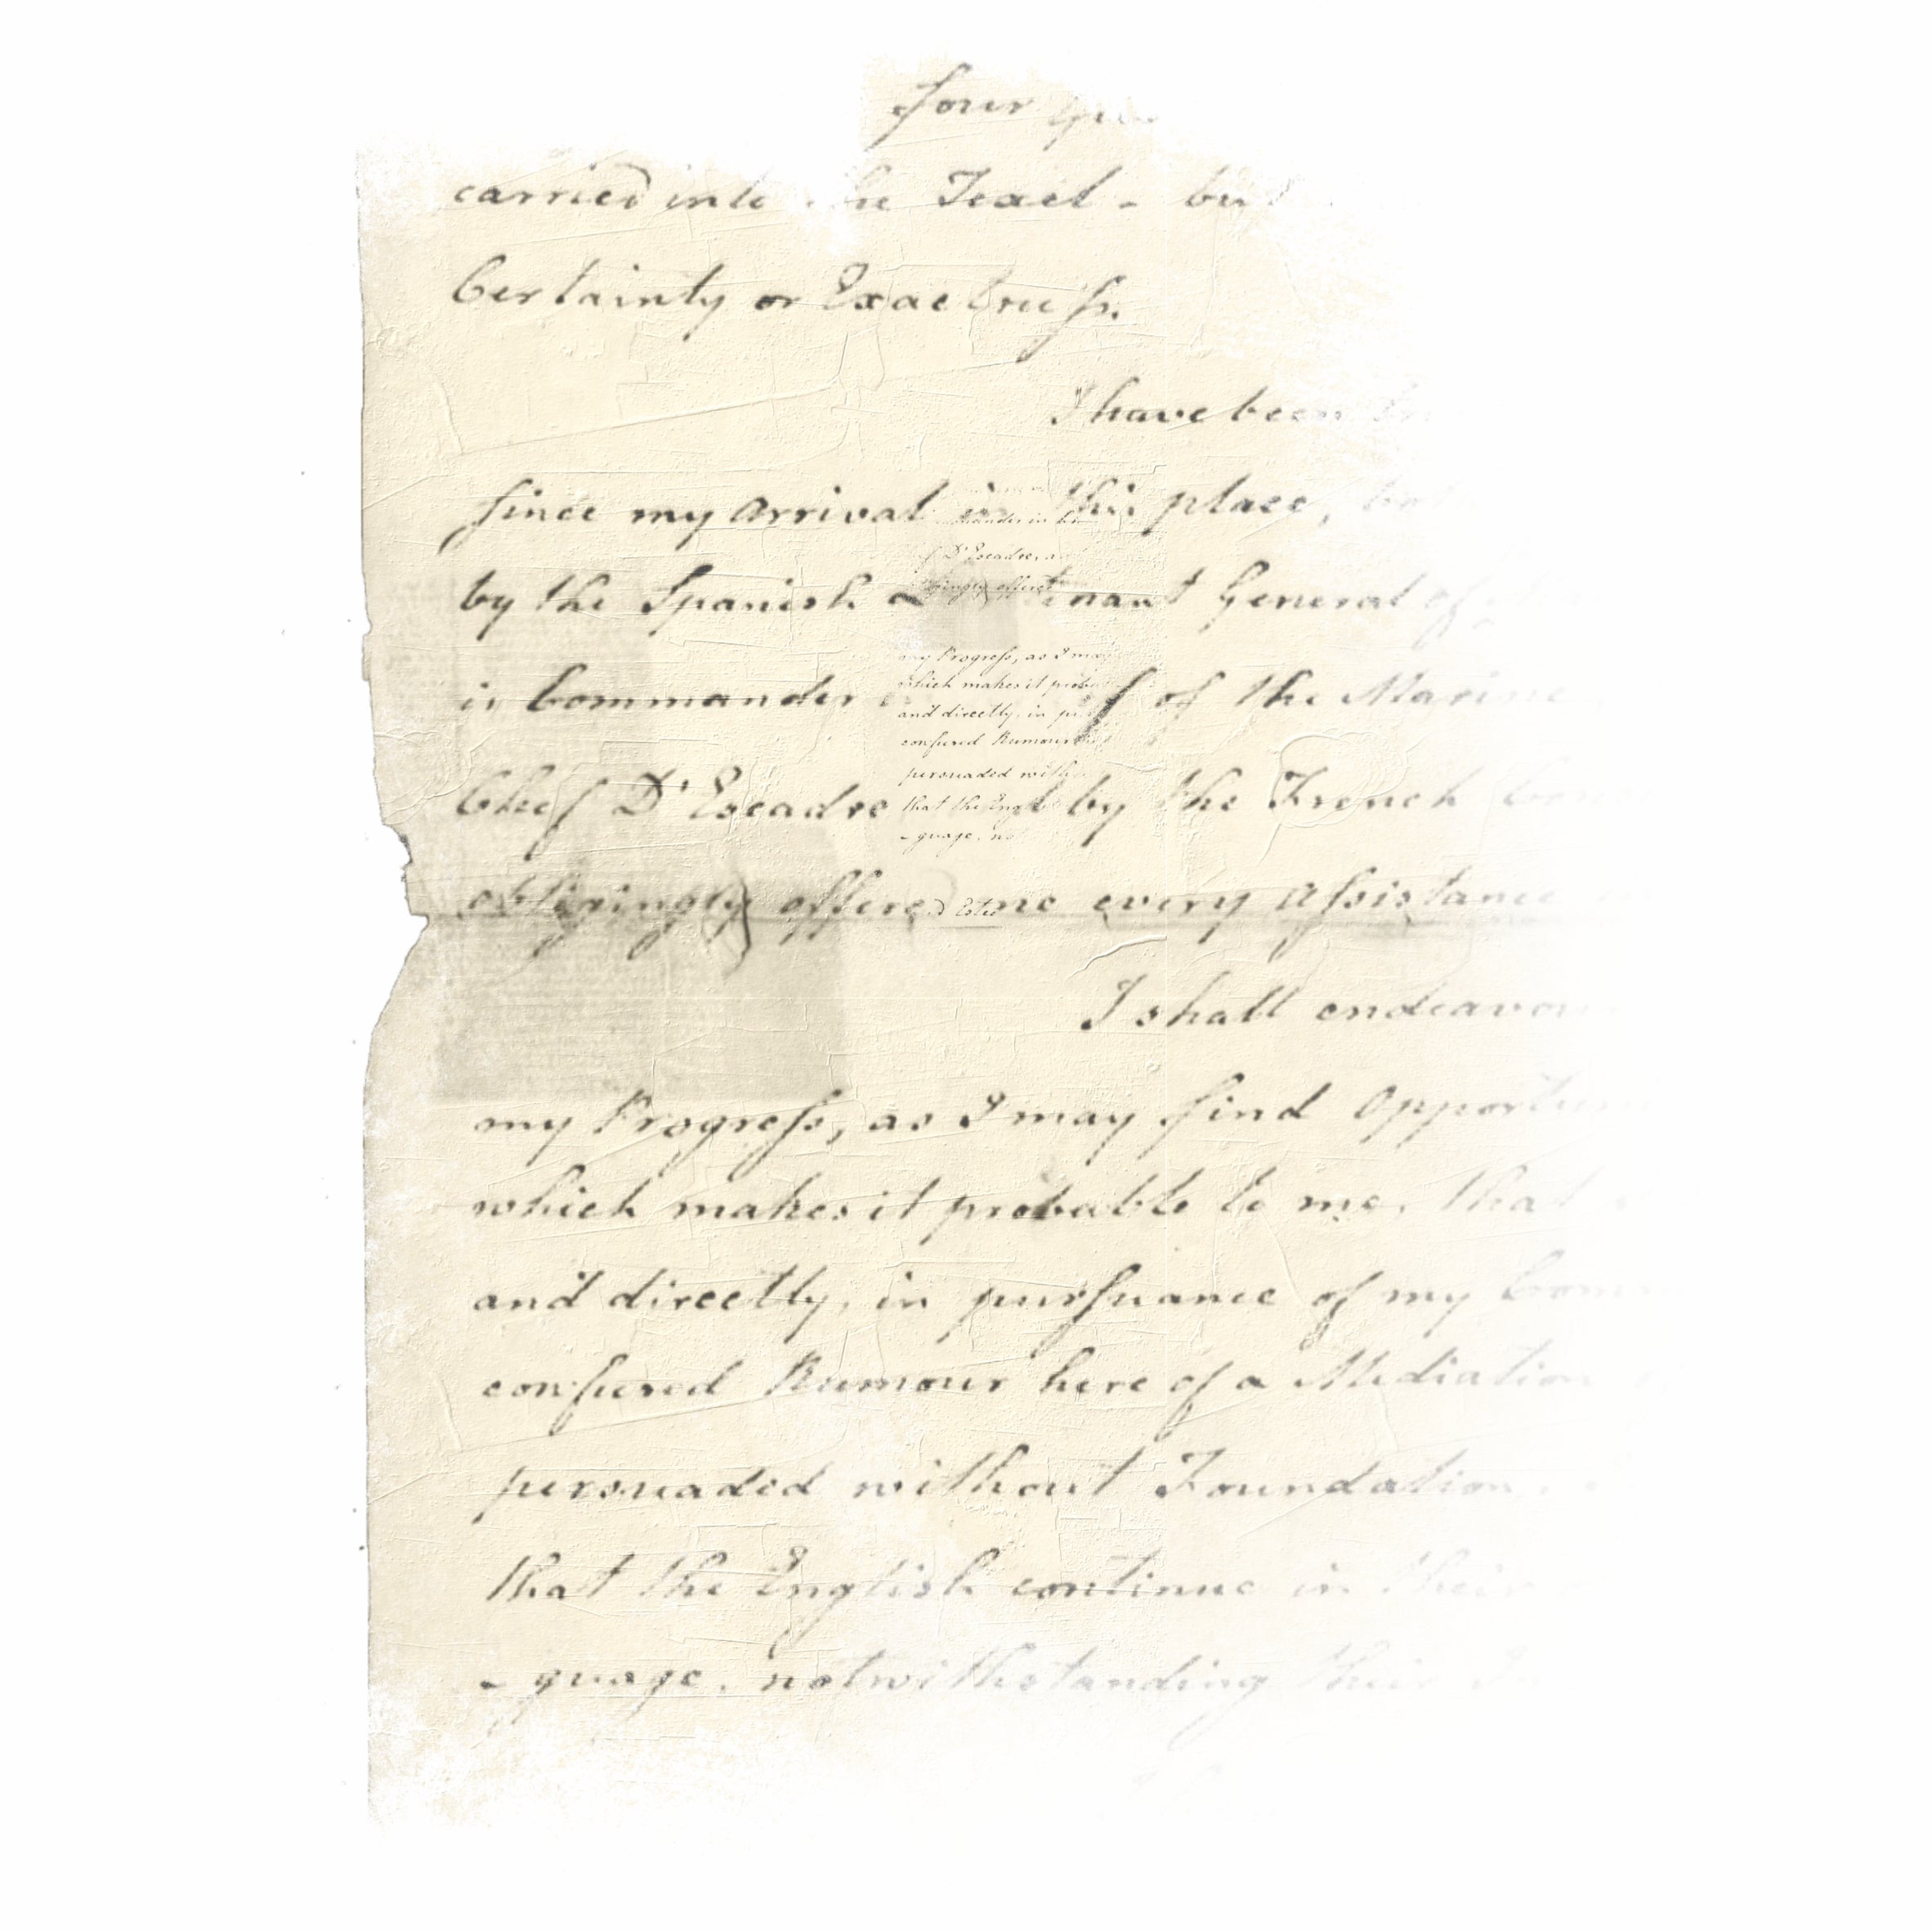 four
carried into the Texel - but
Certainty or Exactness.
I have been
since my arrival in this place,
by the Spanish General of
is Commander of the Marine
Chef D'Escadre by the French
obligingly offered me every Assistance
I shall endeavour
my Progress, as I may find
which makes it probable to me, that
and directly, in pursuance of my
confused Rumour here of a Mediation
persuaded without Foundation
that the English continue in their
- guage. notwithstanding their
mander in
D'Escadre, a
offered
my Progress, as I may
which makes it
and directly, in
confused Rumour
persuaded with
that the Engl
- guage. not